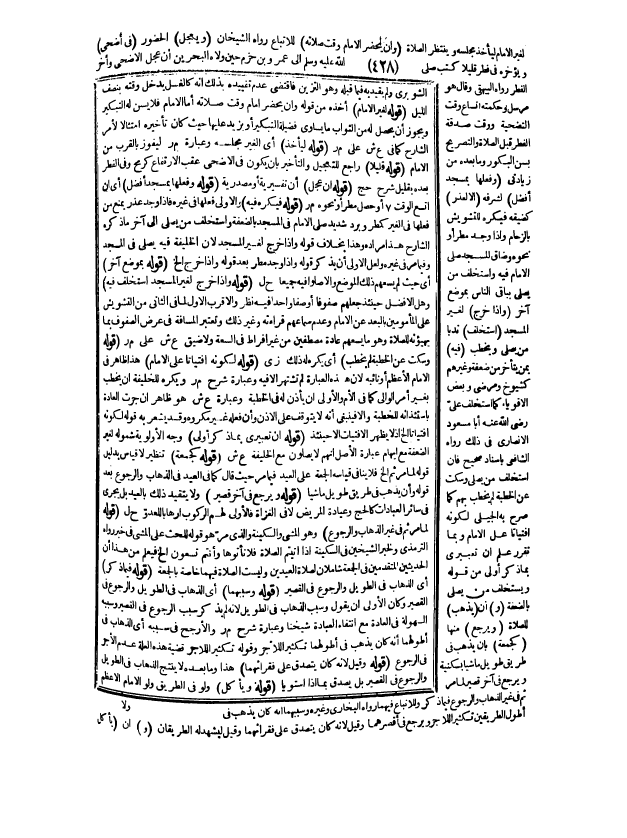 لغير الامام ليأخذ مجلسه وينتظر الصلاة (وان يحضر الامام وقت صلاته) للاتباع رواه الشيخان (ويعجل) الحضور (فى أضحى)
ويؤخره فى فطر قليلا كتب صلى
(٤٢٨)
الله عليه وسلم الى عمرو بن حزم حين ولاه البحرين أن عجل الاضحى وأخر
الفطر رواه البيهقى وقال هو
مرسل وحكمته اتساع وقت
التضحية ووقت صدقة
الفطر قبل الصلاة والتصريح
بسن البكور وما بعده من
زيادتى (وفعلها بمسجد
أفضل) لشرفه (الالعذر)
كضيقه فيكره للتشويش
بالزحام واذا وجد مطر أو
نحوه وضاق المسجد صلى
الامام فيه واستخلف من
يصلى بباقى الناس بموضع
آخر (واذا خرج) لغير
المسجد (استخلف) ندبا
من يصلى ويخطب (فيه)
بمن يتأخر من ضعفة وغيرهم
كشيوخ ومرضى وبعض
الاقوياء كما استخلف على
رضى الله عنه أبا مسعود
الانصارى فى ذلك رواه
الشافعى باسناد صحيح فان
استخلف من يصلى وسكت
عن الخطبة لم يخطب بهم كما
صرح به الجيلى لكونه
افتياتا على الامام وبما
تقرر علم ان تعبيرى
بما ذكر أولى من قوله
ويستخلف من يصلى
بالضعفة (و) ان (يذهب)
للصلاة (ويرجع) منها
(كجمعة) بان يذهب فى
طريق طويل ماشيا بسكينة
ويرجع فى آخر قصير لما مر
الشوبرى ولم يقيد به فيما قبله وهو التزين فاقتضى عدم تقييده بذلك أنه كالغسل يدخل وقته بنصف
الليل (قوله لغير الامام) أخذه من قوله وان يحضر امام وقت صلاته أما الامام فلا يسن له التبكير
ويجوز أن يحصل له من الثواب ما يساوى فضيلة التبكير أو يزيد عليها حيث كان تأخيره امتثالا لأمر
الشارح كما فى ع ش على م ر (قوله ليأخذ) أى الغير مجلسه وعبارة م ر ليفوز بالقرب من
الامام (قوله قليلا) راجع للتعجيل والتأخير بان يكون فى الاضحى عقب الارتفاع كرمح وفى الفطر
بعده بقليل شرح حج (قوله ان عجل) أن تفسيرية أو مصدرية (قوله وفعلها بمسجد أفضل) أى ان
فعلها فى الغير كمطر وبرد شديد صلى الامام فى المسجد بالضعفة واستخلف من يصلى الى آخر ما ذكره
الشارح هذا مراده وهذا بخلاف قوله واذا خرج لغير المسجد لان الخليفة فيه يصلى فى المسجد
وفيما مر فى غيره ولعل الاولى أن يذكر قوله واذا وجد مطر بعد قوله واذا خرج الخ (قوله بموضع آخر)
أى حيث لم يسعهم ذلك الموضع والا صلوا فيه جميعا ح ل (قوله واذا خرج لغير المسجد استخلف فيه)
وهل الافضل حينئذ جعلهم صفوفا أو صفا واحدا فيه نظر والاقرب الاول لما فى الثانى من التشويش
على المأمومين بالبعد عن الامام وعدم سماعهم قراءته وغير ذلك وتعتبر المسافة فى عرض الصفوف بما
يهيؤنه للصلاة وهو ما يسعهم عادة مصطفين من غير افراط فى السعة ولا ضيق ع ش على م ر (قوله
وسكت عن الخطبة لم يخطب) أى يكره له ذلك ز ى (قوله لكونه افتياتا على الامام) هذا ظاهر فى
الامام الأعظم أو نائبه لان هذه العبارة لم تشتهر الا فيه وعبارة شرح م ر ويكره للخليفة ان يخطب
بغير أمر الوالى كما فى الأم والأولى ان يأذن له فى الخطبة وعبارة ع ش هو ظاهر ان جرت العادة
باستئذانه للخطبة والا فينبغى أنه لا يتوقف على الاذن وأن فعله غير مكروه وقد يشعر به قوله لكونه
افتياتا الخ اذ لا يظهر الافتيات الا حينئذ (قوله ان تعبيرى بما ذكر أولى) وجه الأولوية شموله لغير
الضعفة مع ايهام عبارة الأصل انهم لا يصلون مع الخليفة ع ش (قوله كجمعة) تنظير لا قياس بدليل
قوله لما مر ثم الخ فلا ينافى قياسه الجمعة على العيد فيما مر حيث قال كما فى العيد فى الذهاب والرجوع بعد
قوله وأن يذهب فى طريق طويل ماشيا (قوله ويرجع فى آخر قصير) ولا يتقيد ذلك بالعيد بل يجرى
فى سائر العبادات كالحج وعيادة المريض لا فى الغزاة فالأولى لهم الركوب ارهابا للعدو ح ل (قوله
لما مر ثم فى غير الذهاب والرجوع) وهو المشى والسكينة والذى مر هو قوله للحث على المشى فى خبر رواه
الترمذى ولخبر الشيخين فى السكينة اذا أتيتم الصلاة فلا تأتوها وأنتم تسعون الخ فيعلم من هذا أن
الحديثين المتقدمين فى الجمعة شاملان لصلاة العيدين وليست الصلاة فيهما خاصة بالجمعة (قوله فيما ذكر)
أى الذهاب فى الطويل والرجوع فى القصير (قوله وسببهما) أى الذهاب فى الطويل والرجوع فى
القصير وكان الأولى ان يقول وسبب الذهاب فى الطويل لانه لم يذكر سبب الرجوع فى القصير وسببه
السهولة فى العادة مع انتفاء العبادة شيخنا وعبارة شرح م ر والأرجح فى سببه أى الذهاب فى
أطولهما أنه كان يذهب فى أطولهما تكثيرا للأجر وقوله تكثيرا للأجر قضية هذه العلة عدم الأجر
فى الرجوع (قوله وقيل لانه كان يتصدق على فقرائهما) هذا وما بعده لا ينتج الذهاب فى الطويل
والرجوع فى القصير بل يصدق بما اذا استويا (قوله ويأكل) ولو فى الطريق ولو الامام الاعظم
ولا
ثم فى غير الذهاب والرجوع فيما ذكر وللاتباع فيهما رواه البخارى وغيره وسببهما انه كان يذهب فى
أطول الطريقين تكثيرا للاجر ويرجع فى أقصرهما وقيل لانه كان يتصدق على فقرائهما وقيل ليشهد له الطريقان (و) ان (يأكل